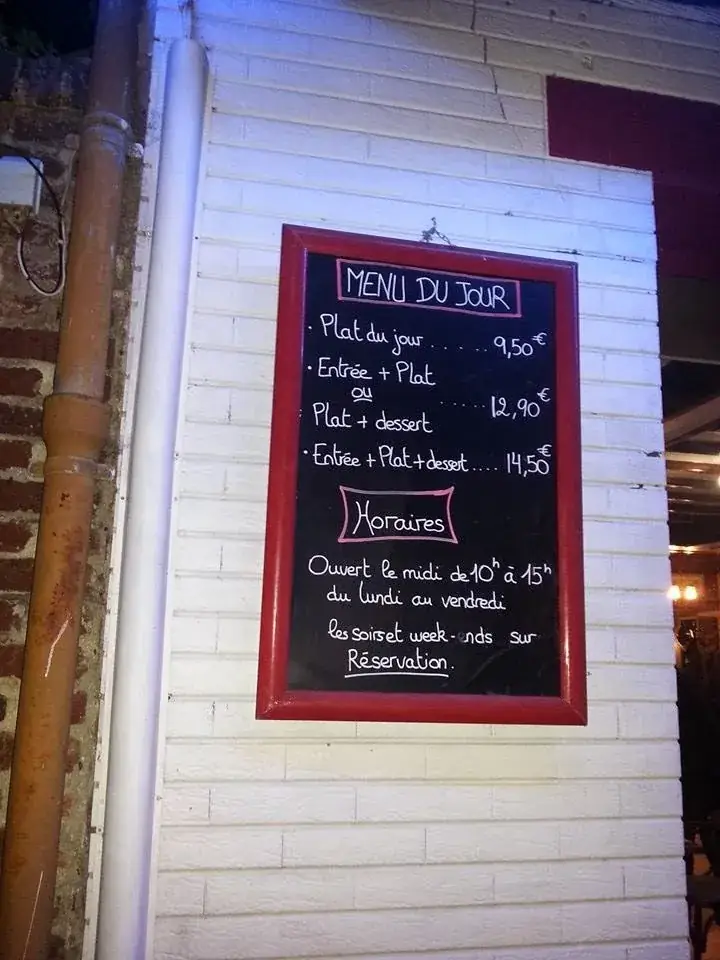 MENU DU JOUR
· Plat du jour ...... 9,50€
· Entrée + Plat
ou
..... 12,90€
: Plat + dessert
· Entrée + Plat + dessert.... 14,50€
Horaires
Ouvert le midi de 10h à 15h
du lundi au vendredi
les soirs et week-ends sur
Réservation.